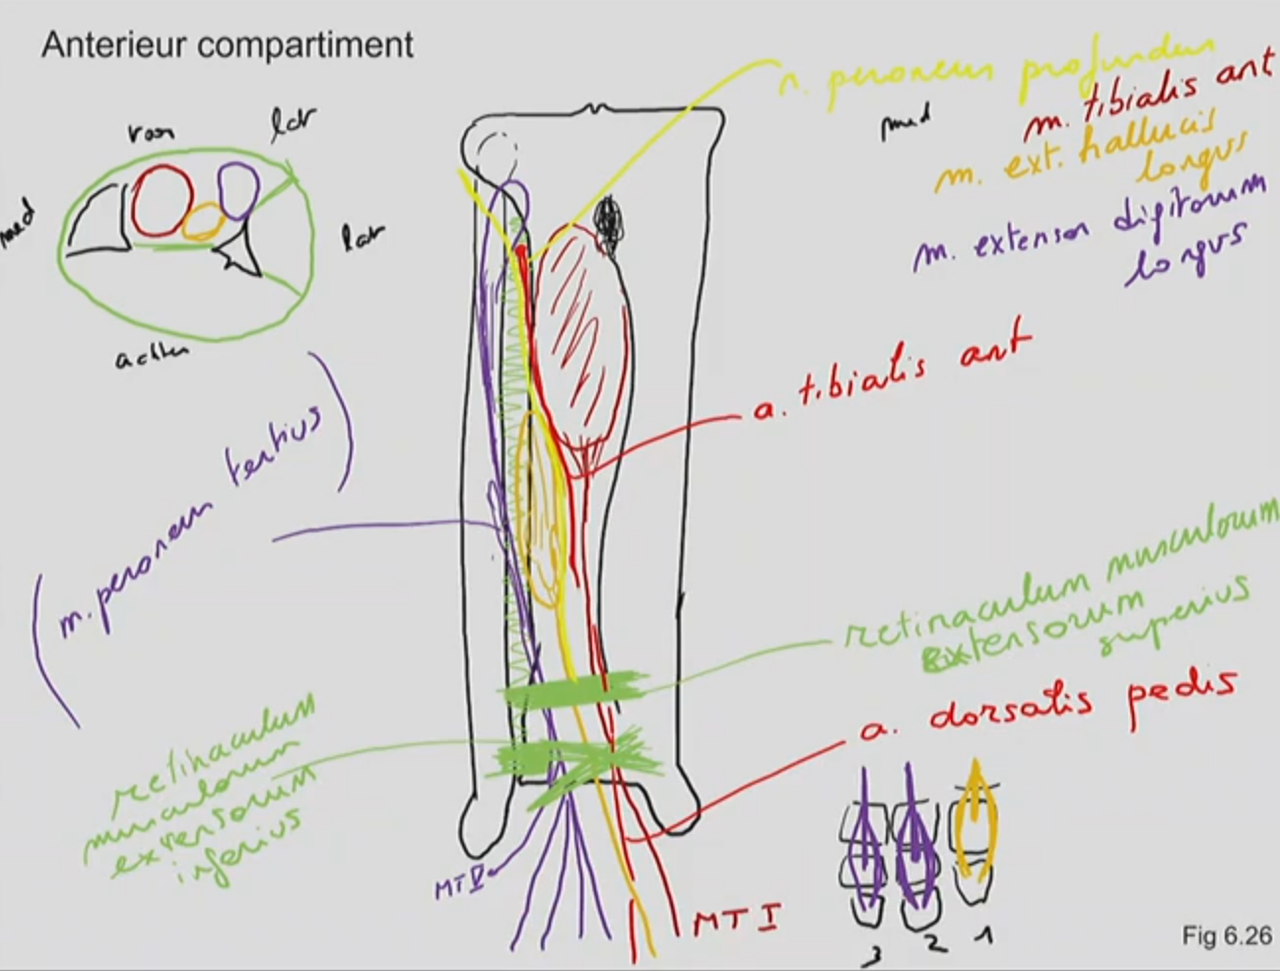 Anterieur compartiment
n. peroneus profundus
med
m. tibialis ant
m. ext. hallucis
longus
m. extensor digitorum
longus
voor
lat
med
lat
achter
a. tibialis ant
(m. peroneus tertius)
retinaculum musculorum
extensorum
superius
a. dorsalis pedis
retinaculum
musculorum
extensorum
inferius
MT V
MT I
3 2 1
Fig 6.26